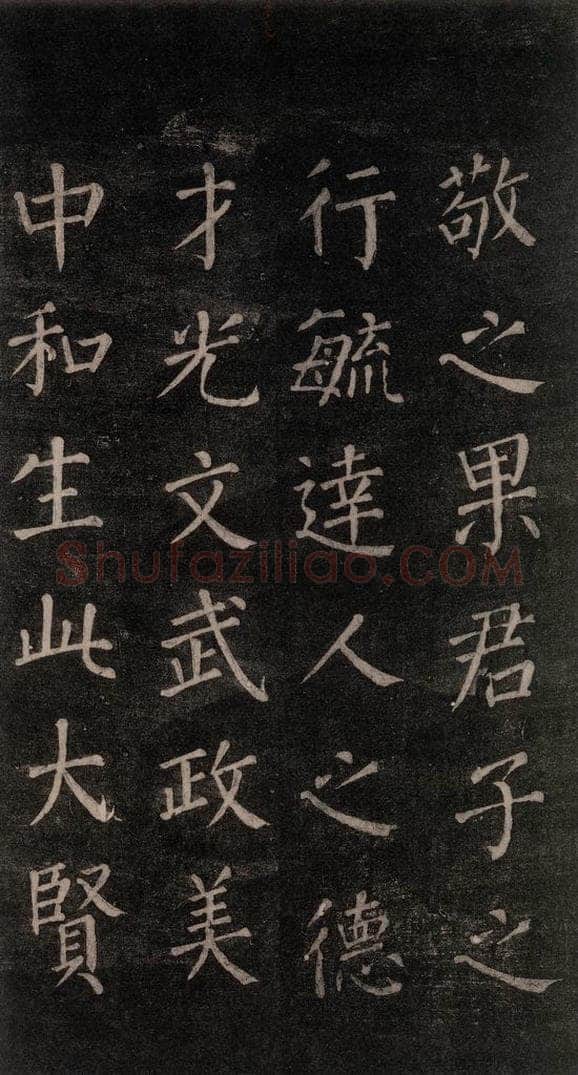 敬之果君子之
行毓達人之德
才光文武政美
中和生此大賢
Shufaziliao.COM